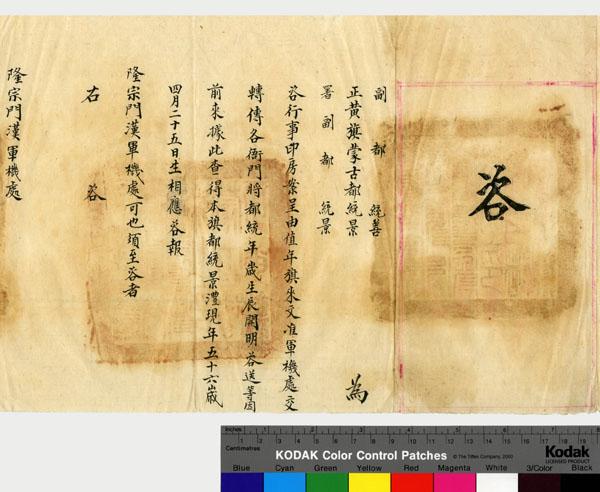 咨
副都統善
正黃旗蒙古都統景
署副都統景
為
咨行事印房案呈由值年旗來文准軍機處交
轉傳各衙門將都統年歲生辰開明咨送等因
前來據此查得本旗都統景灃現年五十六歲
四月二十五日生相應咨報
隆宗門漢軍機處可也須至咨者
右咨
隆宗門漢軍機處
Inches 1 2 3 4 5 6 7 8
Centimetres
KODAK Color Control Patches
© The Tiffen Company, 2000
Kodak
LICENSED PRODUCT
Blue Cyan Green Yellow Red Magenta White 3/Color Black